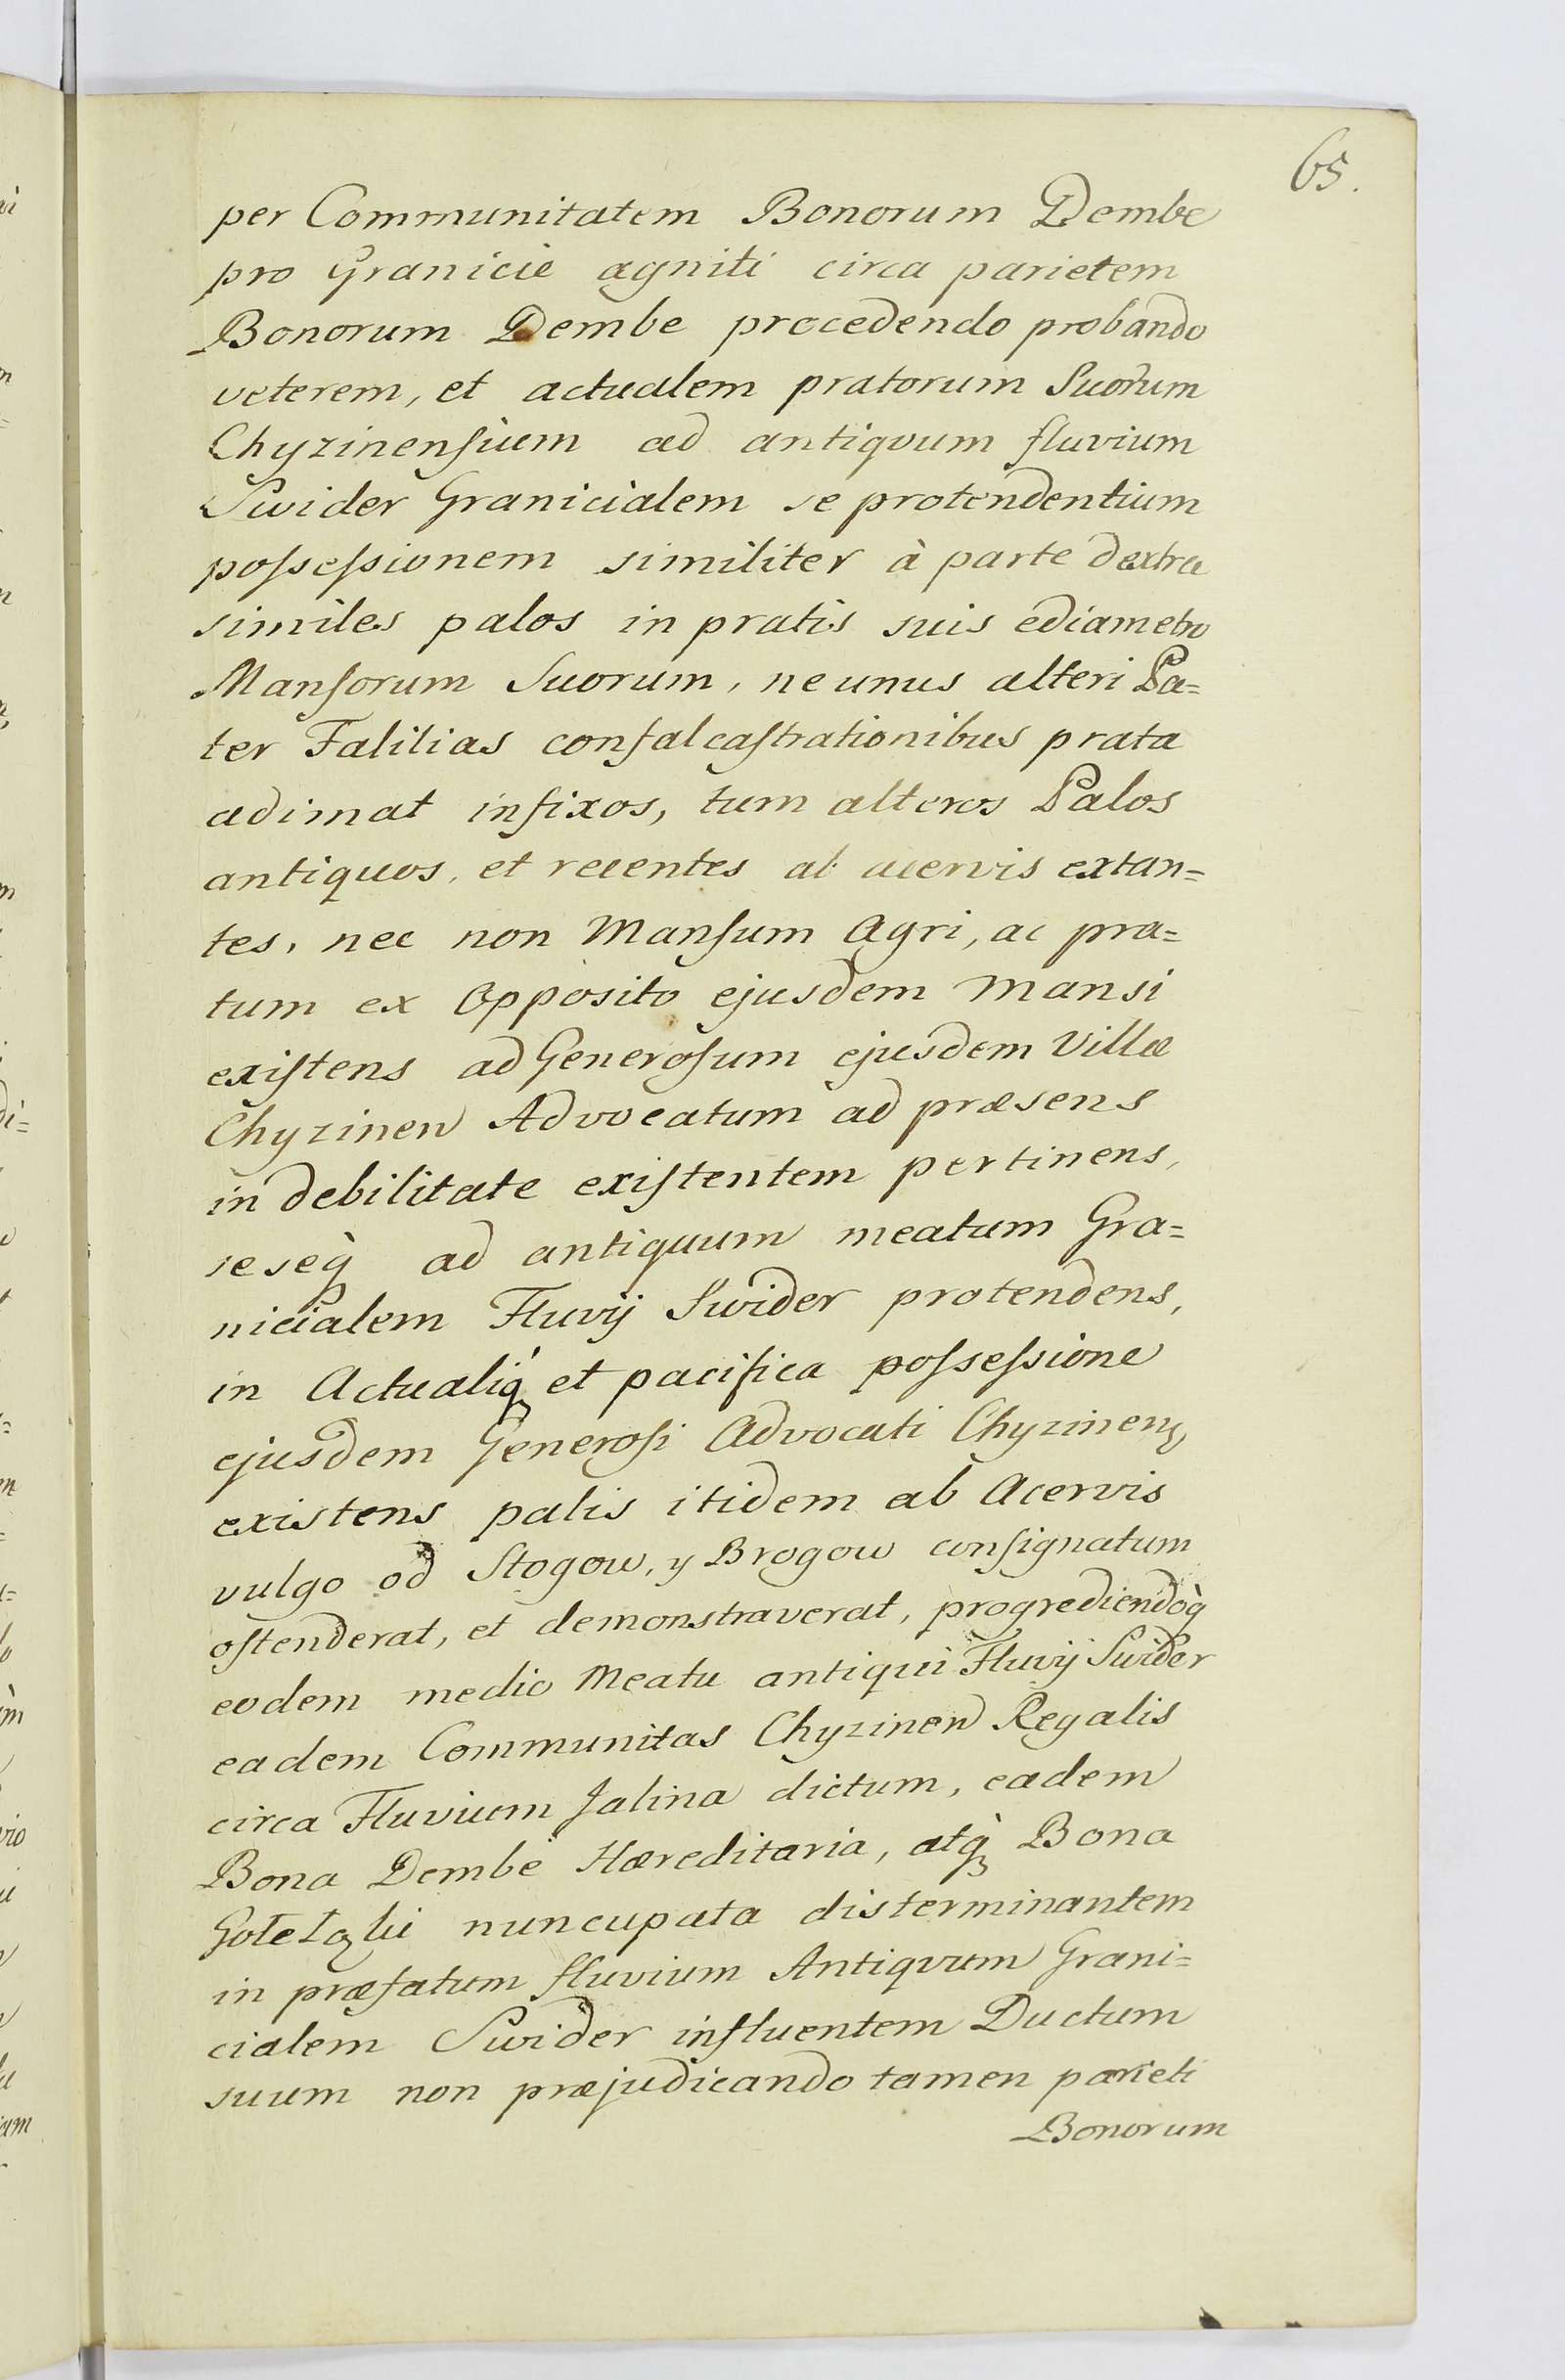 65.
per Communitatem Bonorum Dembe
pro Granicie agniti circa parietem
Bonorum Dembe procedendo probando
veterem, et actualem pratorum Suorum
Chyzinenſium ad antiqvum fluvium
Swider Granicialem se protendentium
poſseſsionem similiter à parte dextra
similes palos in pratis suis ediametro
Manſorum Suorum, ne unus alteri Pa=
ter Falilias confalcaſtrationibus prata
adimat infixos, tum alteros Palos
antiquos, et recentes ab acervis extan=
tes, nec non Manſum Agri, ac pra=
tum ex Opposito ejusdem Mansi
exiſtens ad Generoſum ejusdem Villæ
Chyzinen Advocatum ad præsens
in debilitate exiſtentem pertinens,
seseq̀ ad antiquum meatum Gra=
nicialem Fluvij Swider protendens,
in Actualiq̀ et pacifica poſseſsione
ejusdem Generoſi Advocati Chyzinen
existens palis itidem ab Acervis
vulgo od Stogow, y Brogow conſignatum
oſtenderat, et demonstraverat, progrediendoq̀
eodem medio Meatu antiqui Fluvij Swider
eadem Communitas Chyzinen Regalis
circa Fluvium Jalina dictum, eadem
Bona Dembe Hæreditaria, atq̀ Bona
nuncupata disterminantem
in præfatum fluvium Antiqvum Grani=
cialem Swider influentem Ductum
suum non præjudicando tamen parieti
Bonorum